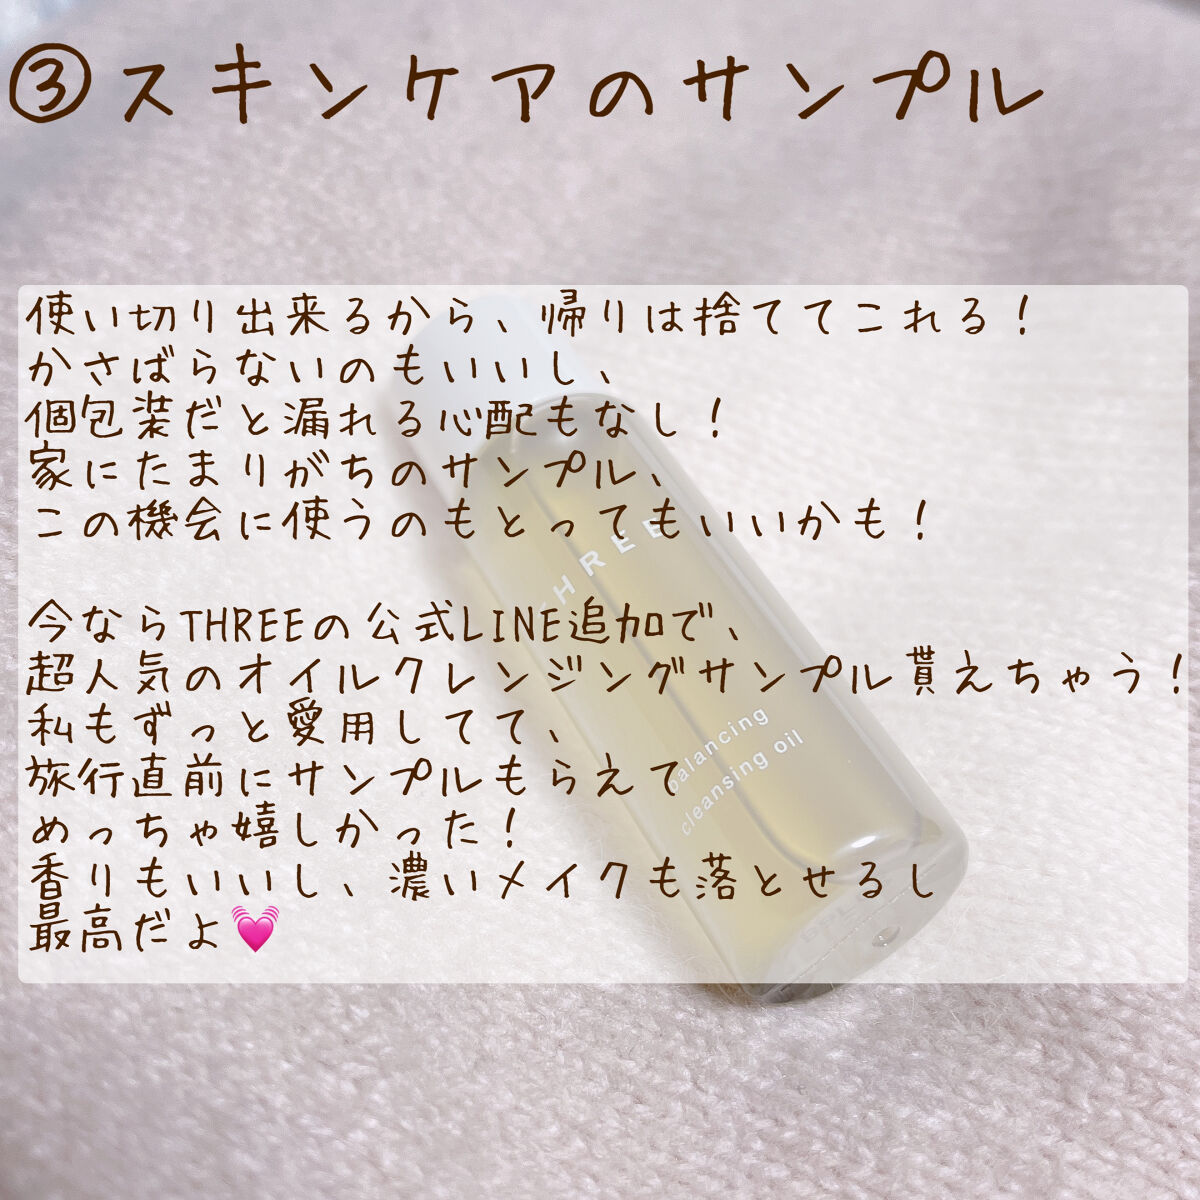 ③スキンケアのサンプル
使い切り出来るから、帰りは捨ててこれる！
かさばらないのもいいし、
個包装だと漏れる心配もなし！
家にたまりがちのサンプル、
この機会に使うのもとってもいいかも！
今ならTHREEの公式LINE追加で、
超人気のオイルクレンジングサンプル貰えちゃう！
私もずっと愛用してて、
旅行直前にサンプルもらえて
めっちゃ嬉しかった！
香りもいいし、濃いメイクも落とせるし
最高だよ💓
THREE
balancing
cleansing oil